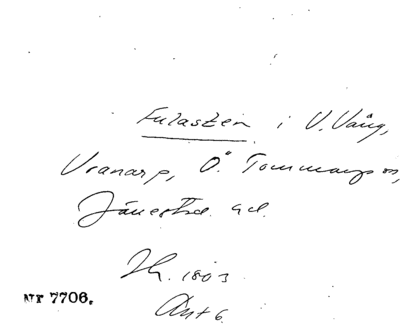 Fulasten i V. Vång,
Vranarp, Ö. Tommarps sn,
Järrestad hd.
Th. 1803
Ant 6
Nr 7706.